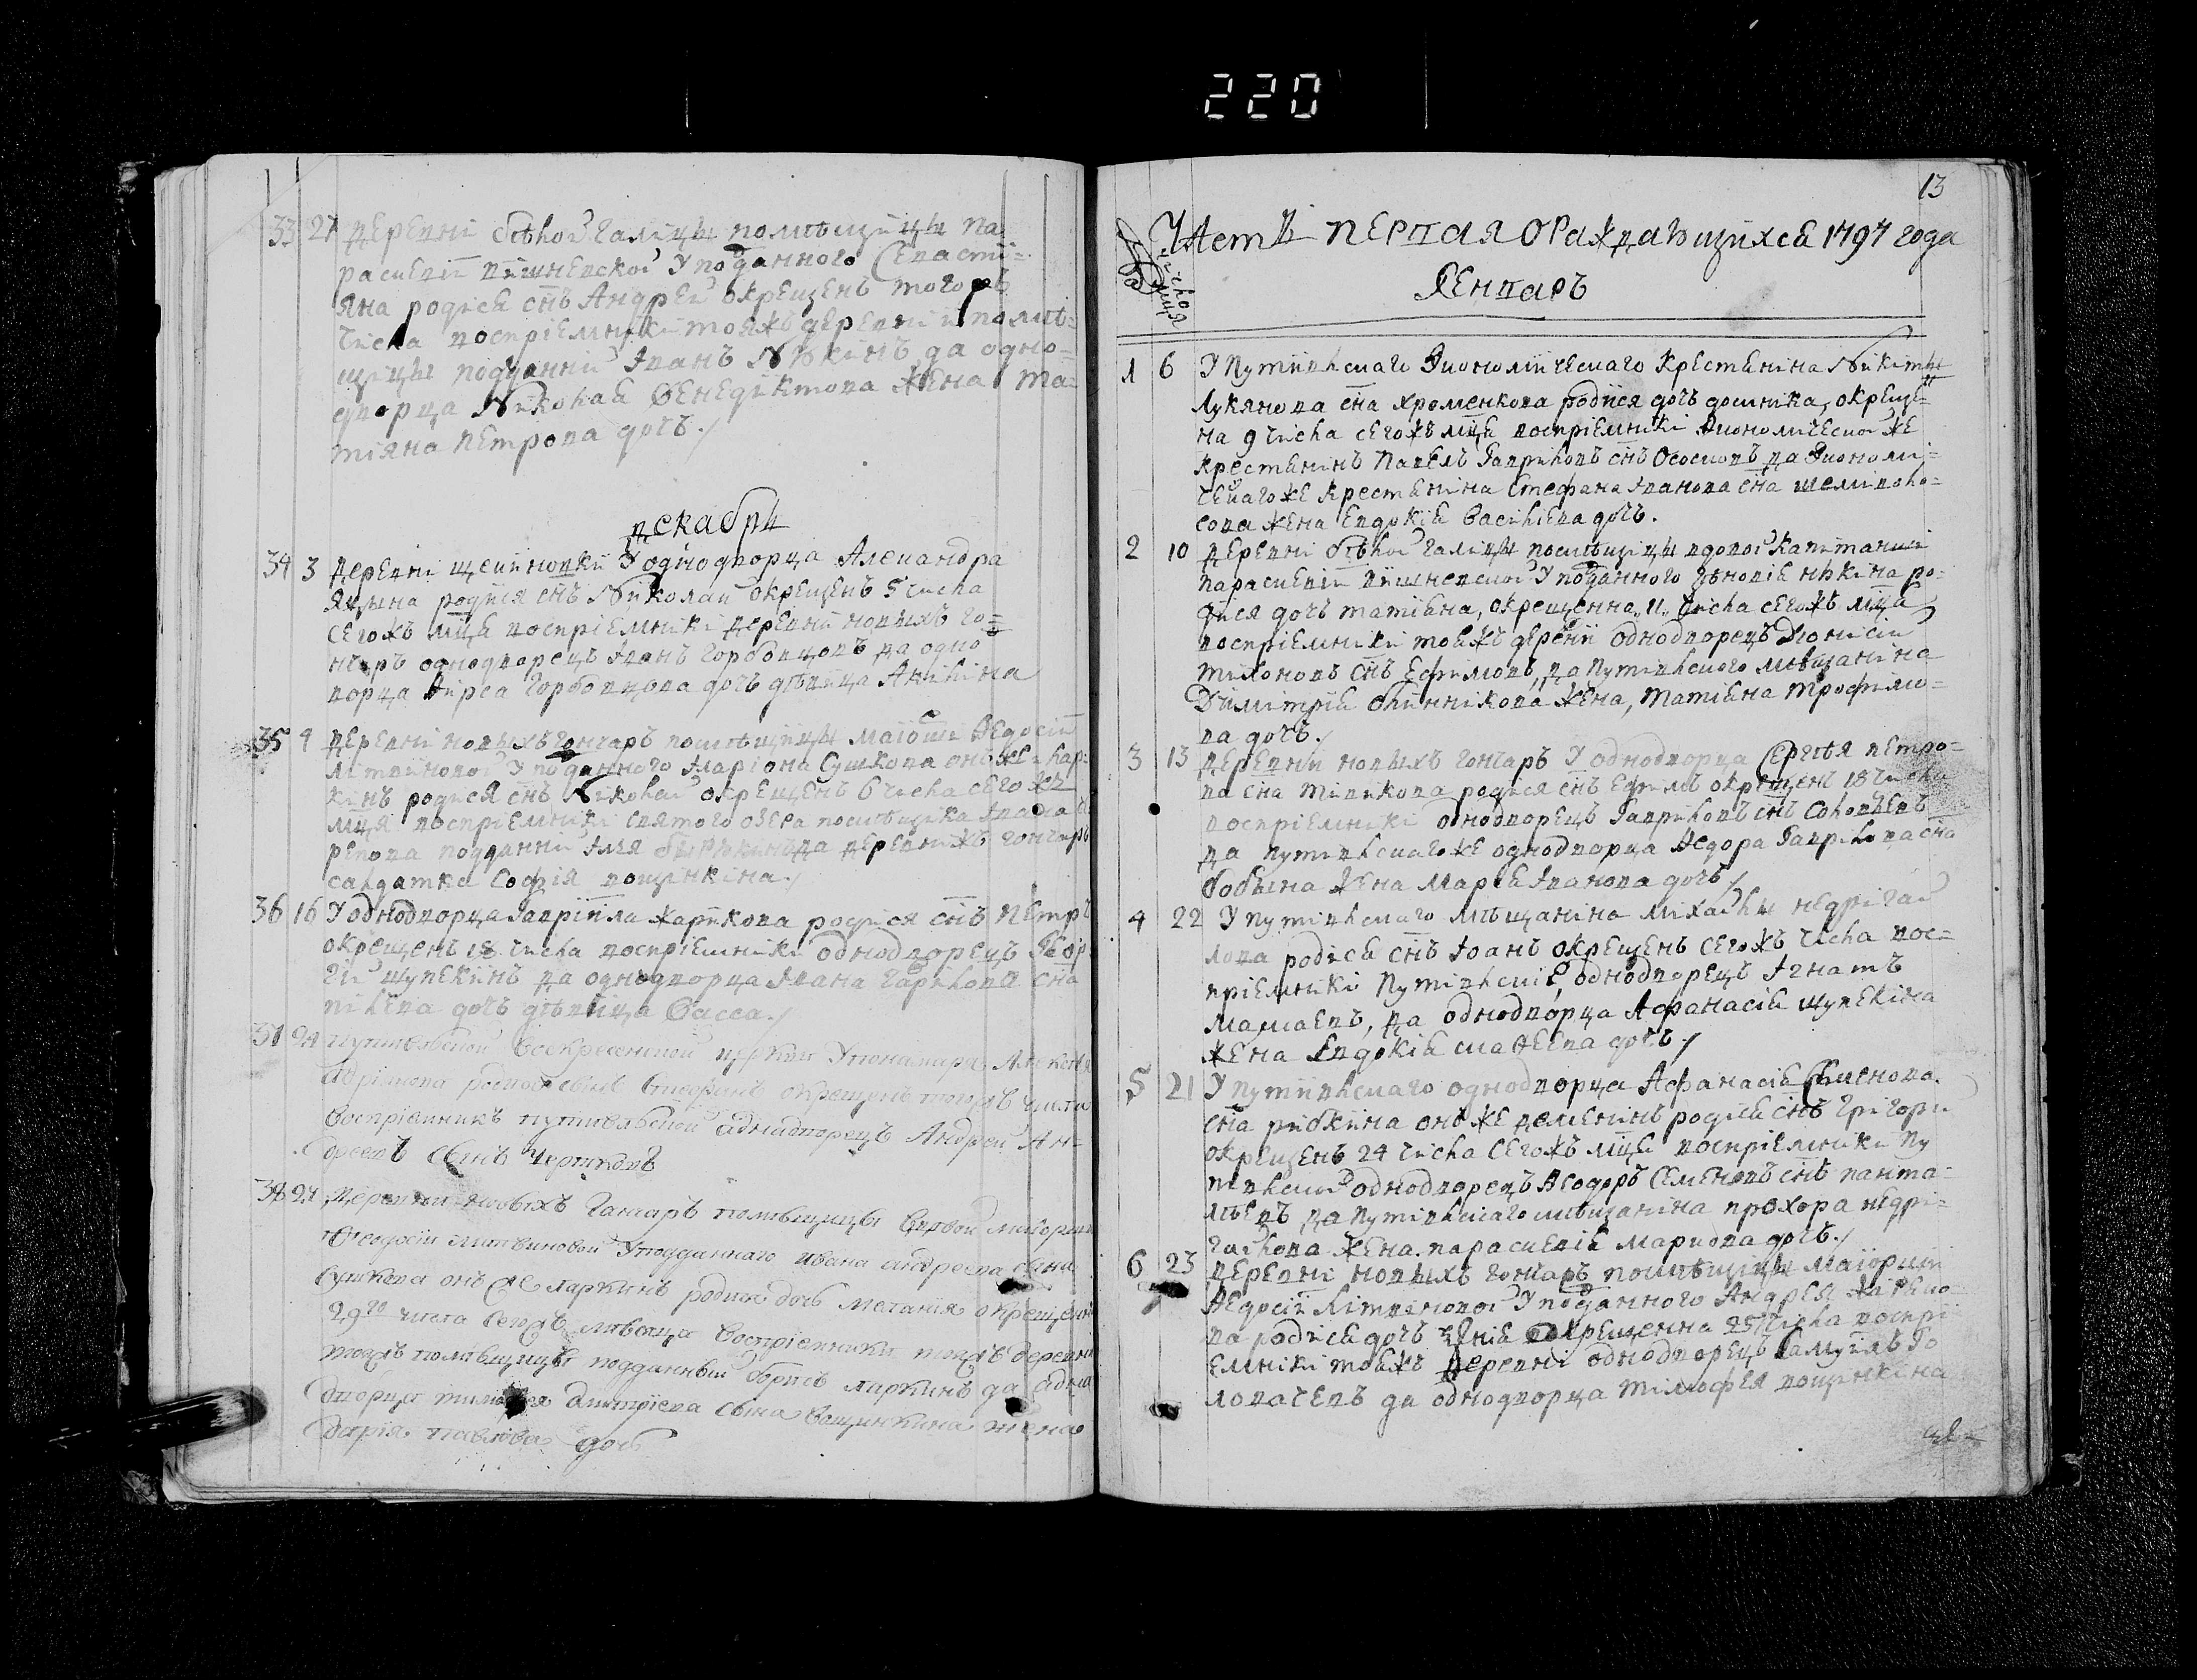 220
33 27 деревни белой галицы помѣщицы Па
раскевіи вишневской у поданного Севастіи=
яна родися снъ Андрей окрещенъ того жъ
числа воспріемники тояжъ деревни помѣ=
щицы подданній Іванъ да одно=
дворца Николая Венедиктова жена Та=
тіяна Петрова дочь
декабрь
34 3 деревни щекиновки У однодворца Александра
Яцына родися снъ Николай окрещенъ 5 числа
сегожъ мца воспріемники деревни новыхъ го=
нчаръ однодворецъ Іванъ Горбовцовъ да одно
ворца Кирса Горбовцова дочь дѣвица Акилина
35 4 деревни новыхъ гончаръ помѣщицы маіорши Ѳедосіи
Літвиновой У поданного Іларіона Сушкова онъ же Лар=
кинъ родися снъ Николай окрещенъ 6 числа сего жъ
мця воспріемники святого озера помѣщика
подданній Ілія да деревни жъ гончаръ
салдатка Софія вощинкина
36 16 У однодворца Гавріила Жарикова родися снъ Петръ
окрещенъ 18 числа воспріемники однодворецъ Геор
гій щупекинъ да однодворца Ивана Гаврилова сна
дочь дѣвица Васса
37 24 путивльской воскресенской церкви У понамаря Алексѣя
Адріанова родился сынъ Стефанъ окрещенъ тогожъ числа
воспріемникъ путивльской однодворецъ Андрей Ан=
дреевъ сынъ Черниковъ
38 27 деревни новыхъ Ганчаръ помѣщицы вдовой маіорши
Ѳеодосіи литвиновой У подданнаго ивана андреева сына
Сушкова онъ же ларкинъ родися дочь Меланія окрещена
29го числа сегожъ мѣсяца воспріемники тоежъ деревни
тоежъ помѣщицы подданный борисъ ларкинъ да одно
дворца тимофея дмитріева сына вощинкина жена
дарія павлова дочь
13
Часть первая ораждающихся 1797 года
Число мця
Генварь
1 6 У Путивлскаго Экономическаго Крестянина Никиты
Лукянова сна хроменкова родися дочь домника, окреще=
на 9 числа сегожъ мца воспріемники Экономической же
крестянинъ Павелъ Гавриловъ снъ да Экономи=
ческагоже крестянина Стефана Іванова сна шелиполо=
сова жена Евдокія Василіева дочь.
2 10 деревни бѣлой галицы помѣщицы вдовой капитанши
Параскевіи вишневской У поданного зѣновіе някина ро=
дися дочь татіяна, окрещенна 11 числа сегожъ мца
воспріемники тояжъ деревни однодворецъ Діонисій
тихоновъ снъ Ефимовъ, да путивлского мѣщанина
Димитрія олийникова жена, татіяна трофимо=
ва дочь.
3 13 деревни новыхъ гончаръ У однодворца Сергѣя петро=
ва сна тивикова родися снъ Ефимъ окрещенъ 18 числа
воспріемники однодворецъ Гавриловъ снъ Соловьевъ
да путивлскагоже однодворца Ѳедора Гаврилова сна
бобина жена Марія Іванова дочь
4 22 У путивлскаго мѣщанина михайлы недригай
лова родися снъ Іоанъ окрещенъ сегожъ числа вос=
пріемники путивлскіе однодворецъ Ігнатъ
мамаевъ, да однодворца Афанасія щупекина
жена Евдокія дочь.
5 21 У путивлскаго однодворца Афанасія Семенова
сна рибкина онъ же деменинъ родися снъ григорій
окрещенъ 24 числа сегожъ мца воспріемники пу
тивлской однодворецъ Ѳеодоръ Семеновъ снъ панта=
лѣевъ да путивлскаго мѣщанина прохора недри=
гайлова жена параскевія маркова дочь
6 23 деревни новыхъ гончаръ помѣщицы маіорши
Ѳедосіи Літвиновой У поданного Андрея
ва родися дочь окрещенна 25 числа воспрі
емники тояжъ деревни однодворецъ Самуилъ Го
ловачевъ да однодворца тимофея вощинкина